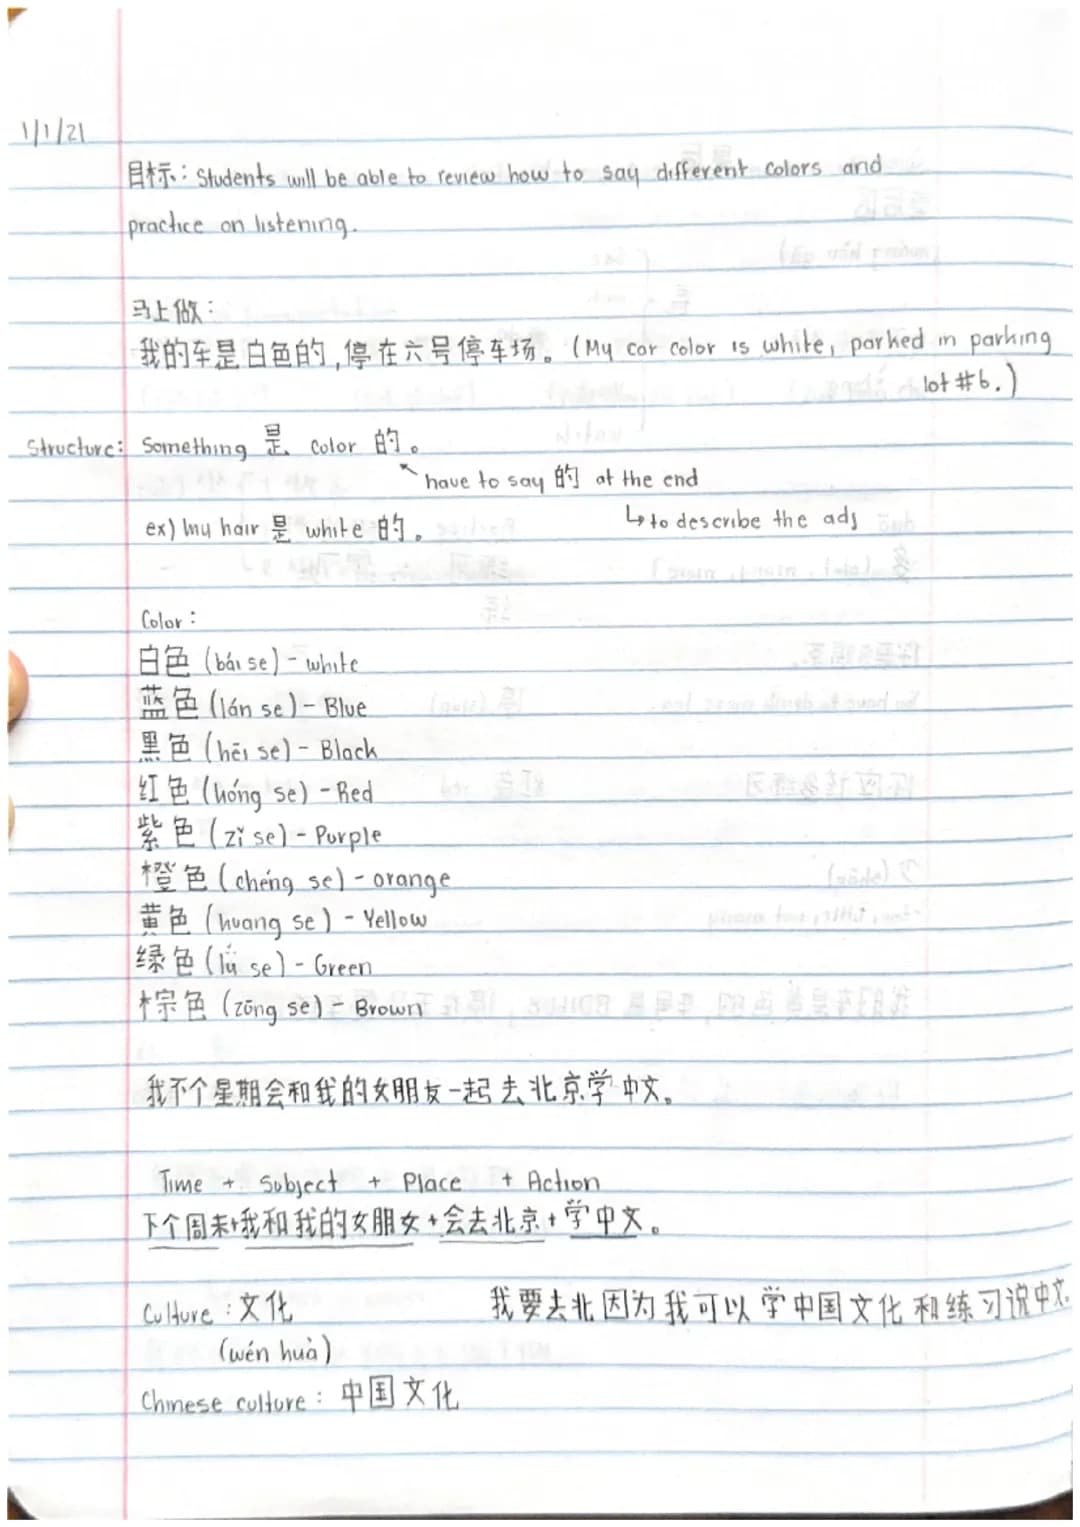 1/1/21
目标: Students will be able to review how to say different colors and
practice on listening.
马上做:
我的车是白色的,停在六号停车场。(My car color is white, parked in parking
lot #6.)
Structure: Something 是 color 的。
have to say 的 at the end
↳ to describe the adj
ex) my hair 是 white 的。
Color:
白色 (bái se) - white
蓝色 (lán se) - Blue
黑色 (hēi se) - Black
红色 (hóng se) - Red
紫色 (zǐ se) - Purple
橙色 (chéng se) - orange
黄色 (huang se) - Yellow
绿色 (lǜ se) - Green
棕色 (zōng se) - Brown
我不个星期会和我的女朋友一起去北京学中文。
Time + Subject + Place + Action
下个周末+我和我的女朋女+会去北京+学中文。
Culture: 文化 我要去北因为我可以学中国文化和练习说中文.
(wén huà)
Chinese culture: 中国文化